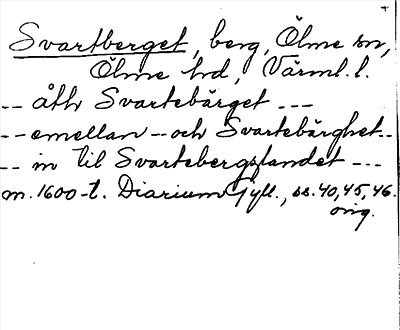 Svartberget, berg, Ölme sn,
Ölme hd, Värml. l.
-- åth Svartebärget ---
-- emellan -- och Svartebärghet --
-- in til Svartebergslandet ---
m. 1600-t. Diarium Gyll., ss. 40, 45, 46.
orig.